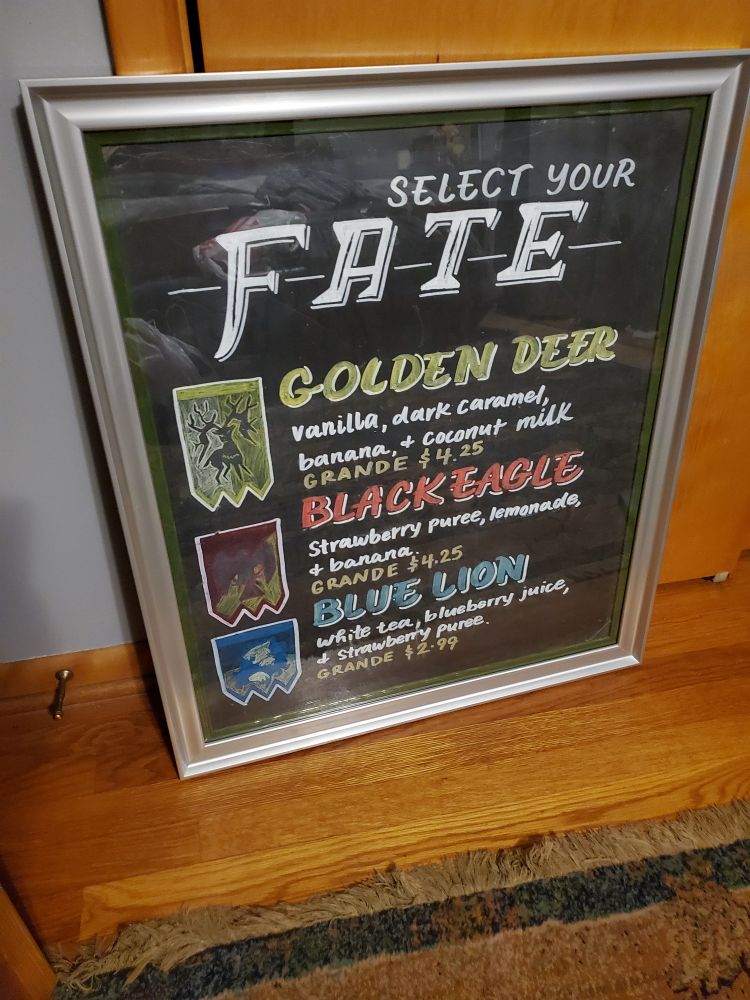 SELECT YOUR
FATE
GOLDEN DEER
vanilla, dark caramel,
banana, + coconut milk
GRANDE $4.25
BLACK EAGLE
Strawberry puree, lemonade,
+ banana.
GRANDE $4.25
BLUE LION
White tea, blueberry juice,
+ Strawberry puree.
GRANDE $2.99